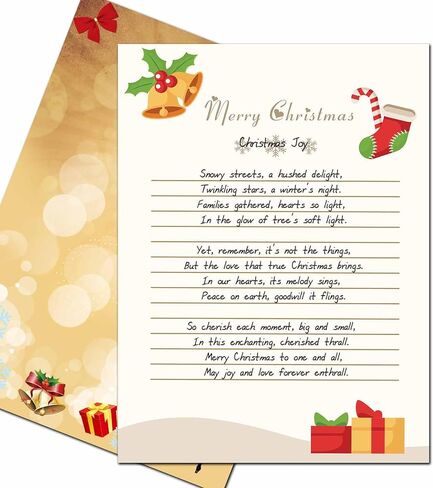 Merry Christmas
Christmas Joy
Snowy streets, a hushed delight,
Twinkling stars, a winter's night.
Families gathered, hearts so light,
In the glow of tree's soft light.
Yet, remember, it's not the things,
But the love that true Christmas brings.
In our hearts, its melody sings,
Peace on earth, goodwill it flings.
So cherish each moment, big and small,
In this enchanting, cherished thrall.
Merry Christmas to one and all,
May joy and love forever enthrall.